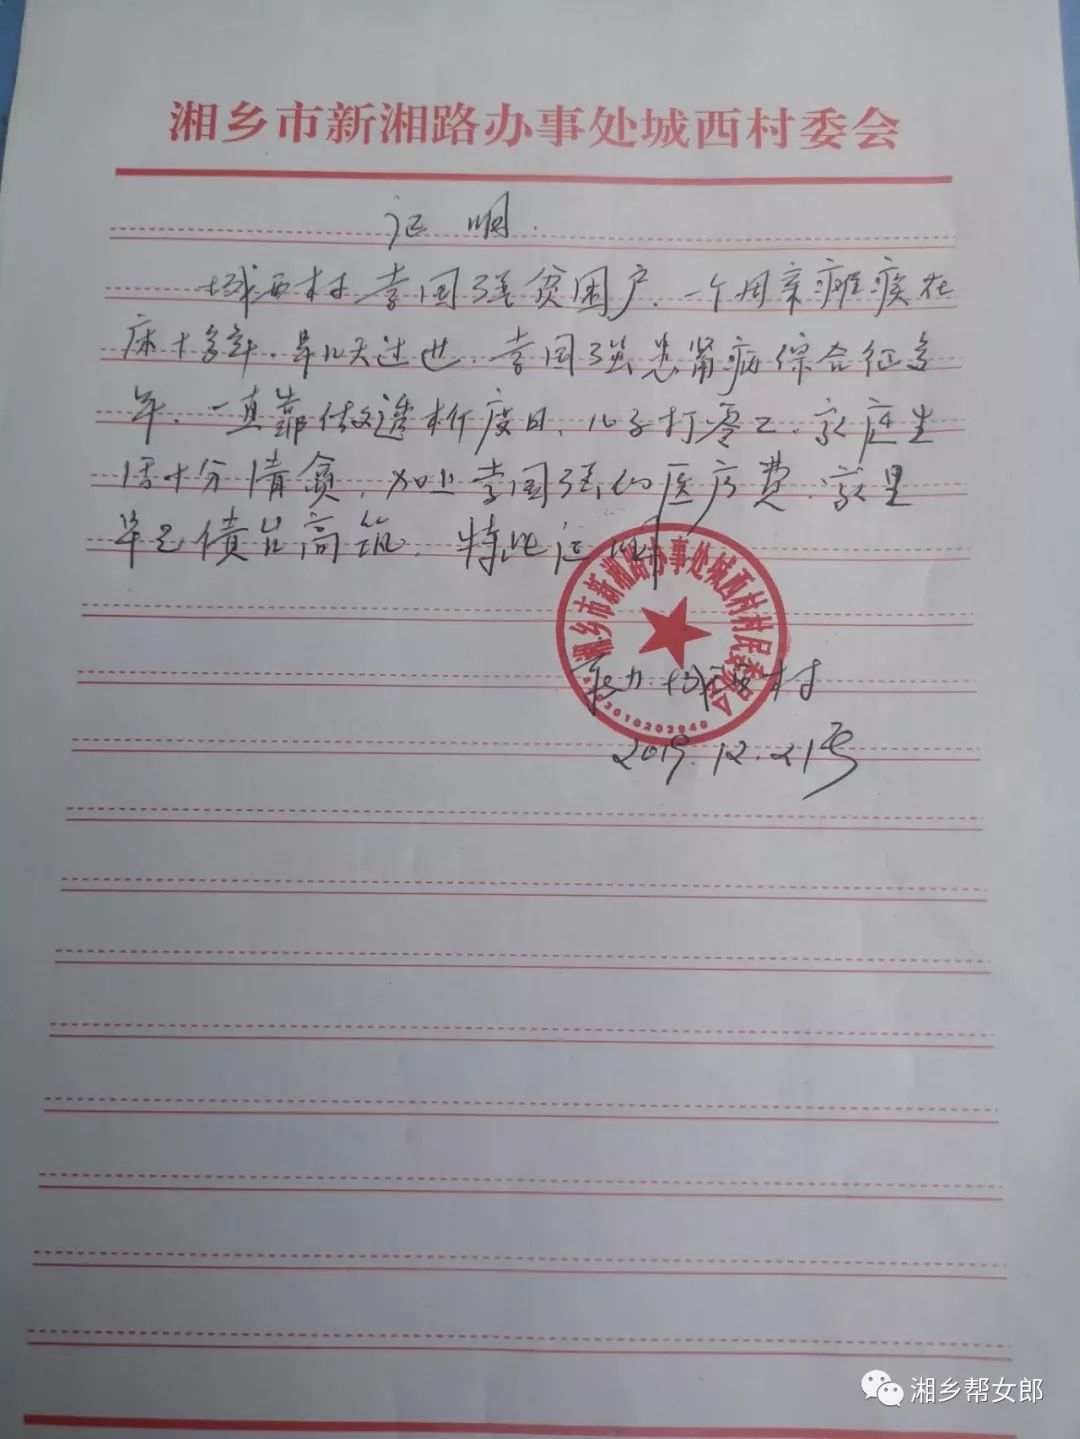 湘乡市新湘路办事处城西村委会
证明.
城西村李国强贫困户.一个母亲瘫痪在
床十多年.前几天过世.李国强患肾病综合征多
年.一直靠做透析度日、儿子打零工.家庭生
活十分清贫,加上李国强的医疗费.家里
早已债台高筑.特此证明
湘乡市新湘路办事处城西村村民委员会
城西村
3010203940
2019.12.21号
湘乡帮女郎